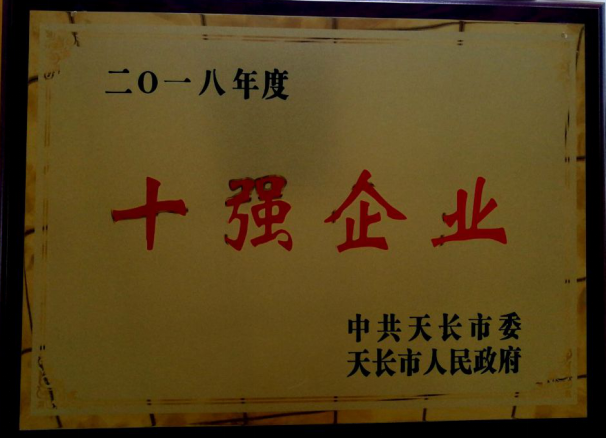 二〇一八年度
十强企业
中共天长市委
天长市人民政府